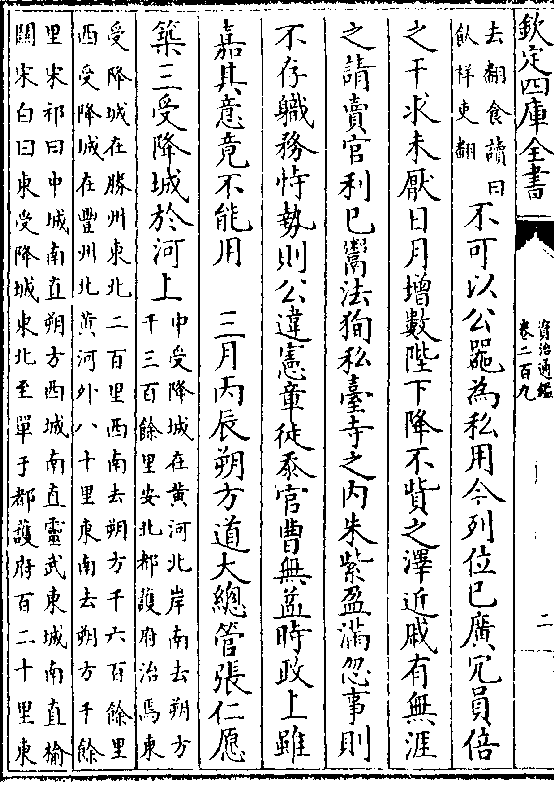 欽定四庫全書
資治通鑑
卷二百九
二
去翻食讀曰
飤祥吏翻
不可以公器為私用今列位已廣冗員倍
之干求未厭日月增數陛下降不貲之澤近戚有無涯
之請賣官利已鬻法徇私臺寺之内朱紫盈滿忽事則
不存職務恃勢則公違憲章徒忝官曹無益時政上雖
嘉其意竟不能用 三月丙辰朔方道大總管張仁愿
築三受降城於河上
中受降城在黄河北岸南去朔方
千三百餘里安北都護府治焉東
受降城在勝州東北二百里西南去朔方千六百餘里
西受降城在豐州北黄河外八十里東南去朔方千餘
里宋祁曰中城南直朔方西城南直靈武東城南直榆
關宋白曰東受降城東北至單于都護府百二十里東